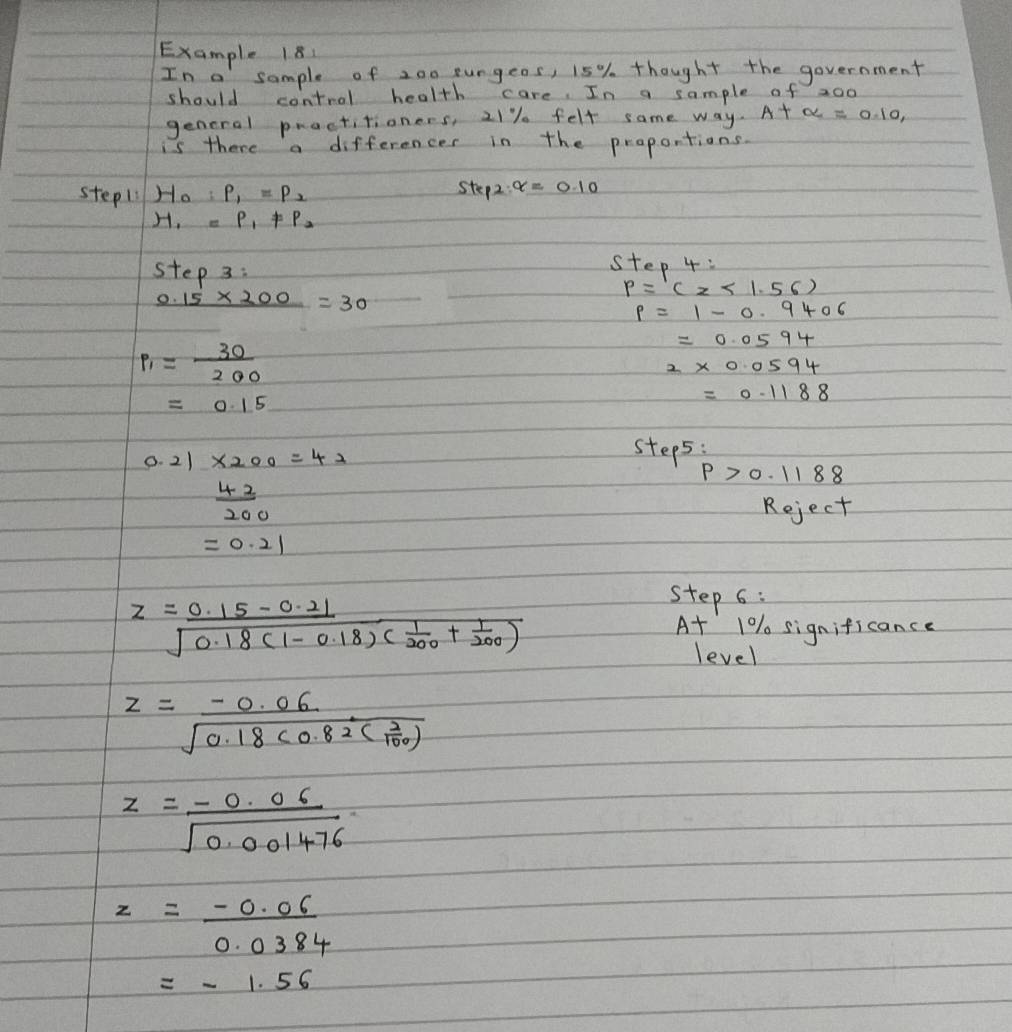 Example 18:
In a sample of 200 surgeos, 15% thought the government
should control health care. In a sample of 200
general practitioners, 21% felt same way. At α = 0.10,
is there a differences in the proportions.
Step1: H₀ : P₁ = P₂
H₁ = P₁ ≠ P₂
Step2: α = 0.10
Step 3:
0.15 × 200 = 30
P₁ = 30/200
= 0.15
0.21 × 200 = 42
42/200
= 0.21
z = 0.15 - 0.21 / √0.18(1 - 0.18)(1/200 + 1/200)
z = -0.06 / √0.18(0.82(2/100)
z = -0.06 / √0.001476
z = -0.06 / 0.0384
= - 1.56
Step 4:
P = (z < 1.56)
P = 1 - 0.9406
= 0.0594
2 × 0.0594
= 0.1188
Step5:
P > 0.1188
Reject
Step 6:
At 1% significance
level